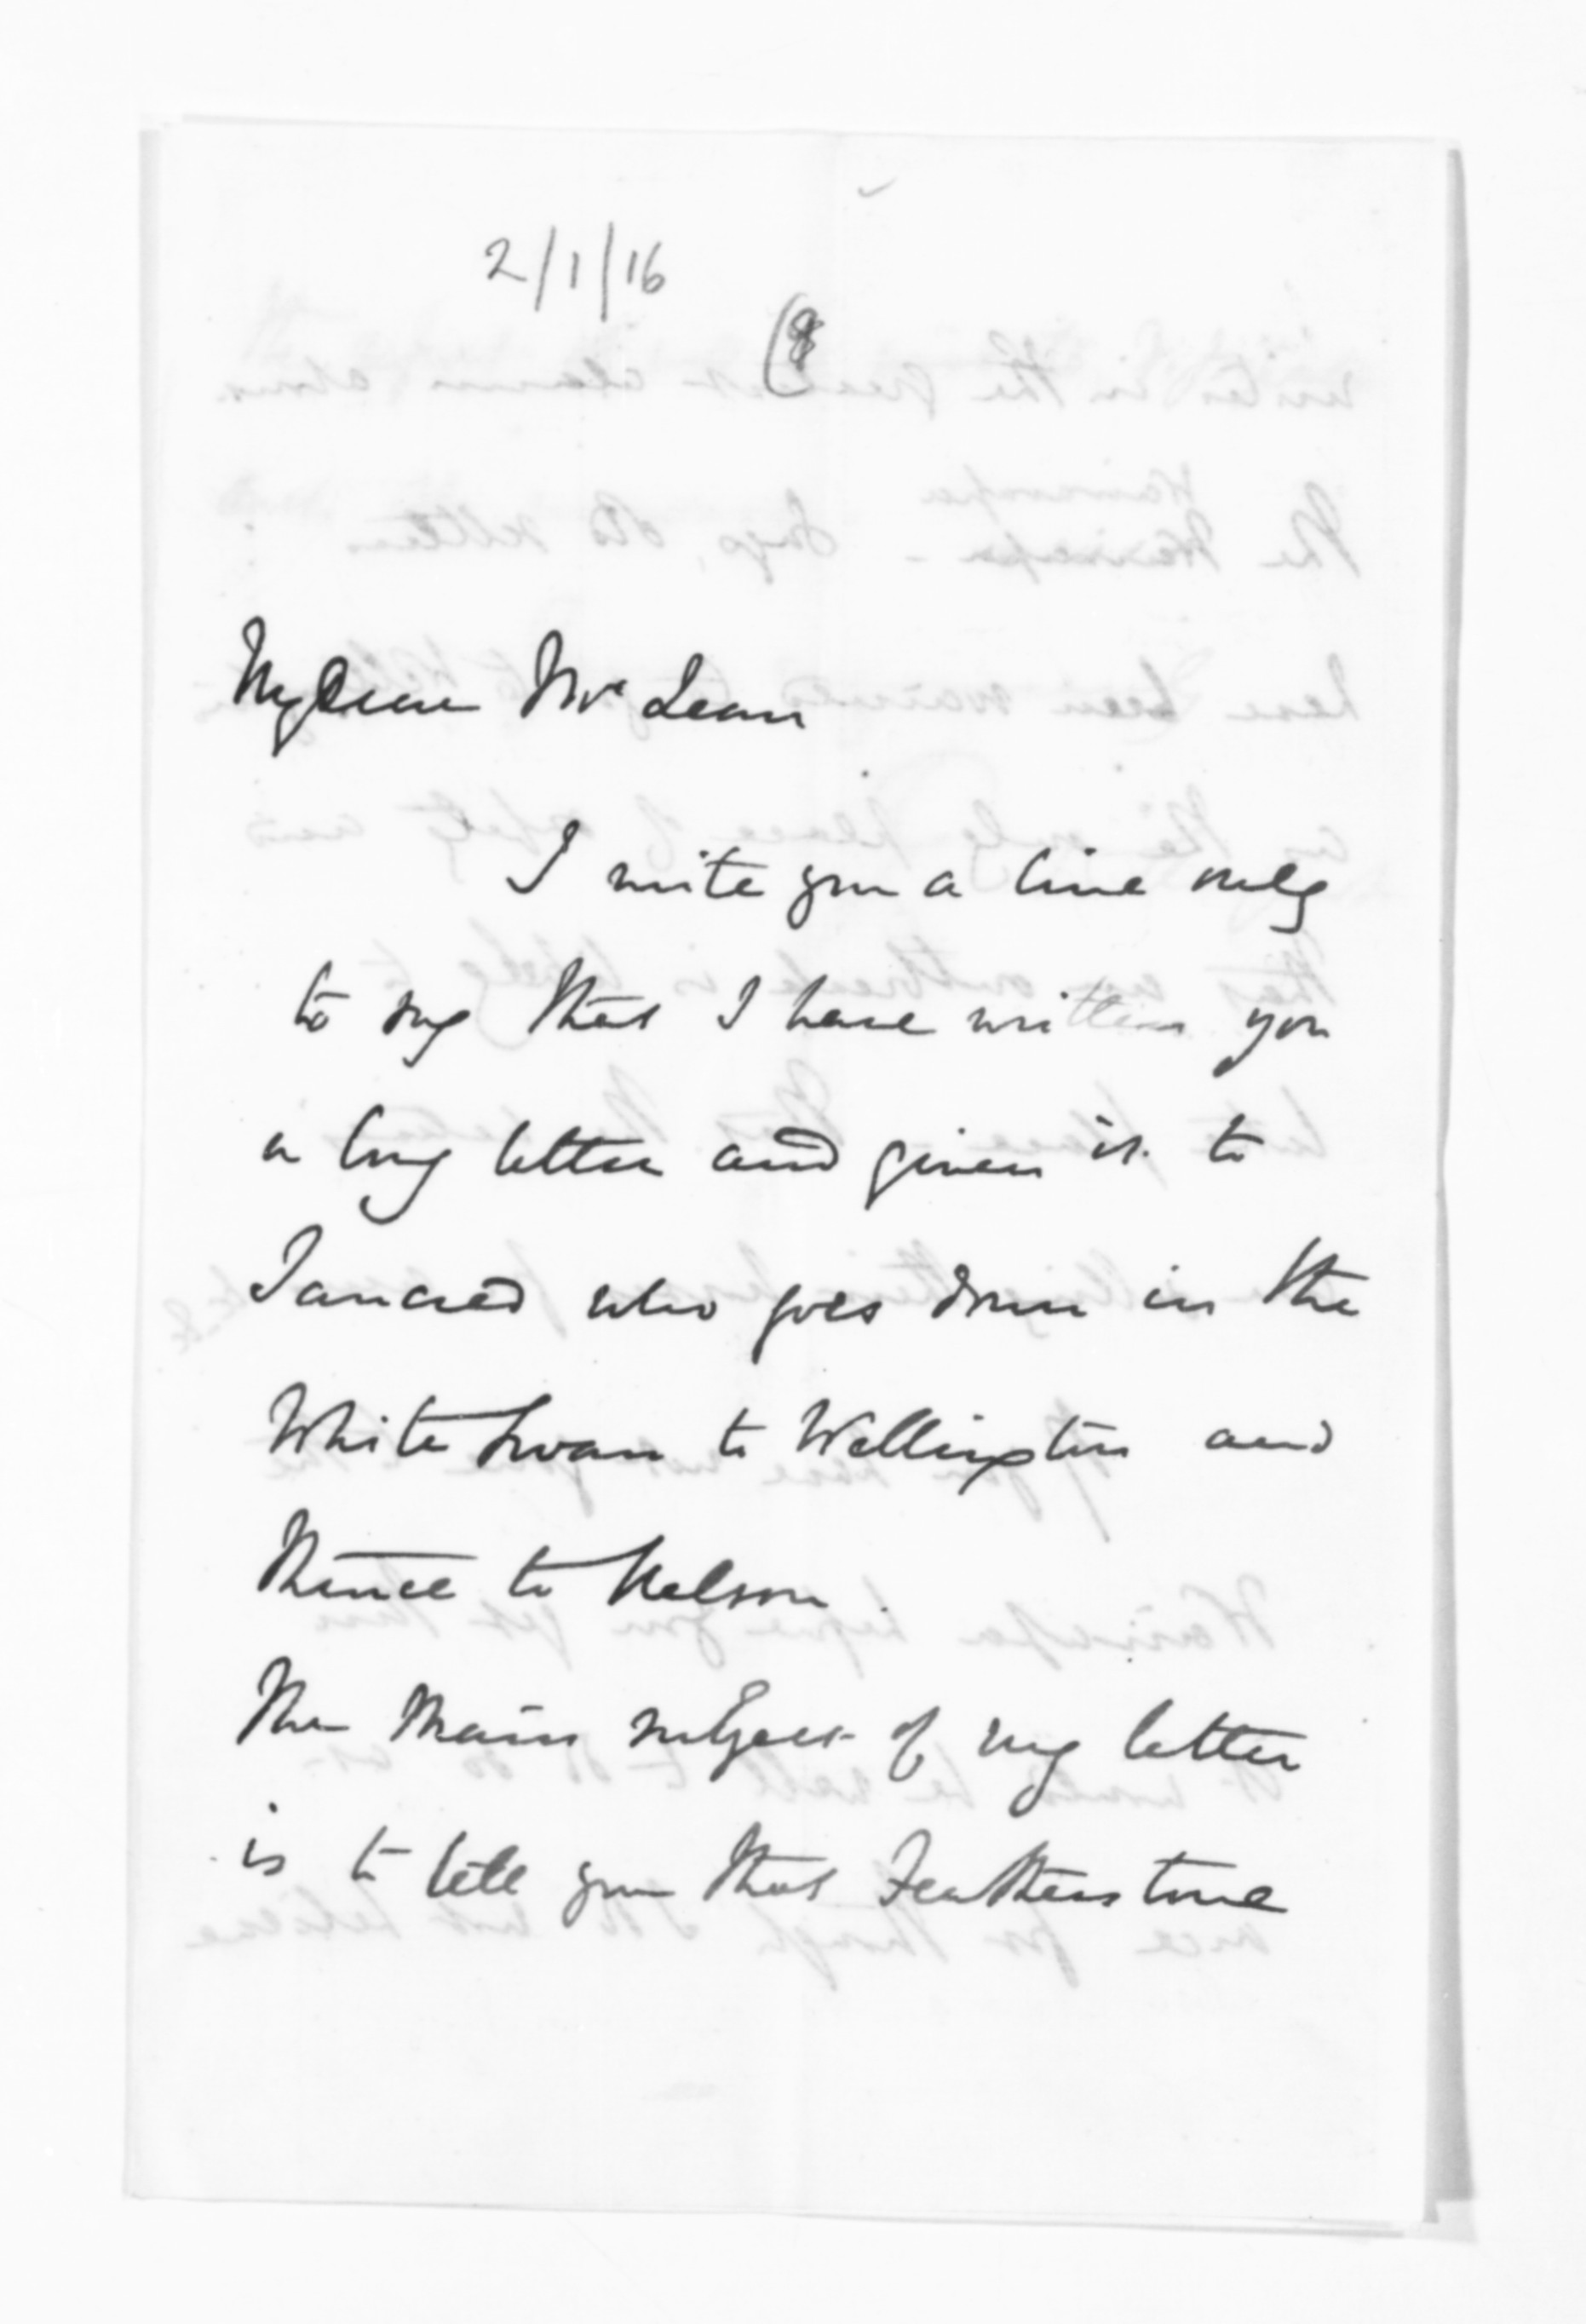 2/1/16
My Dear McLean
I write you a line only
to say that I have written you
a long letter and given it to
Tancred who goes down in the
White Swan to Wellington and
thence to Nelson.
The main subject of my letter
is to tell you that Featherstone